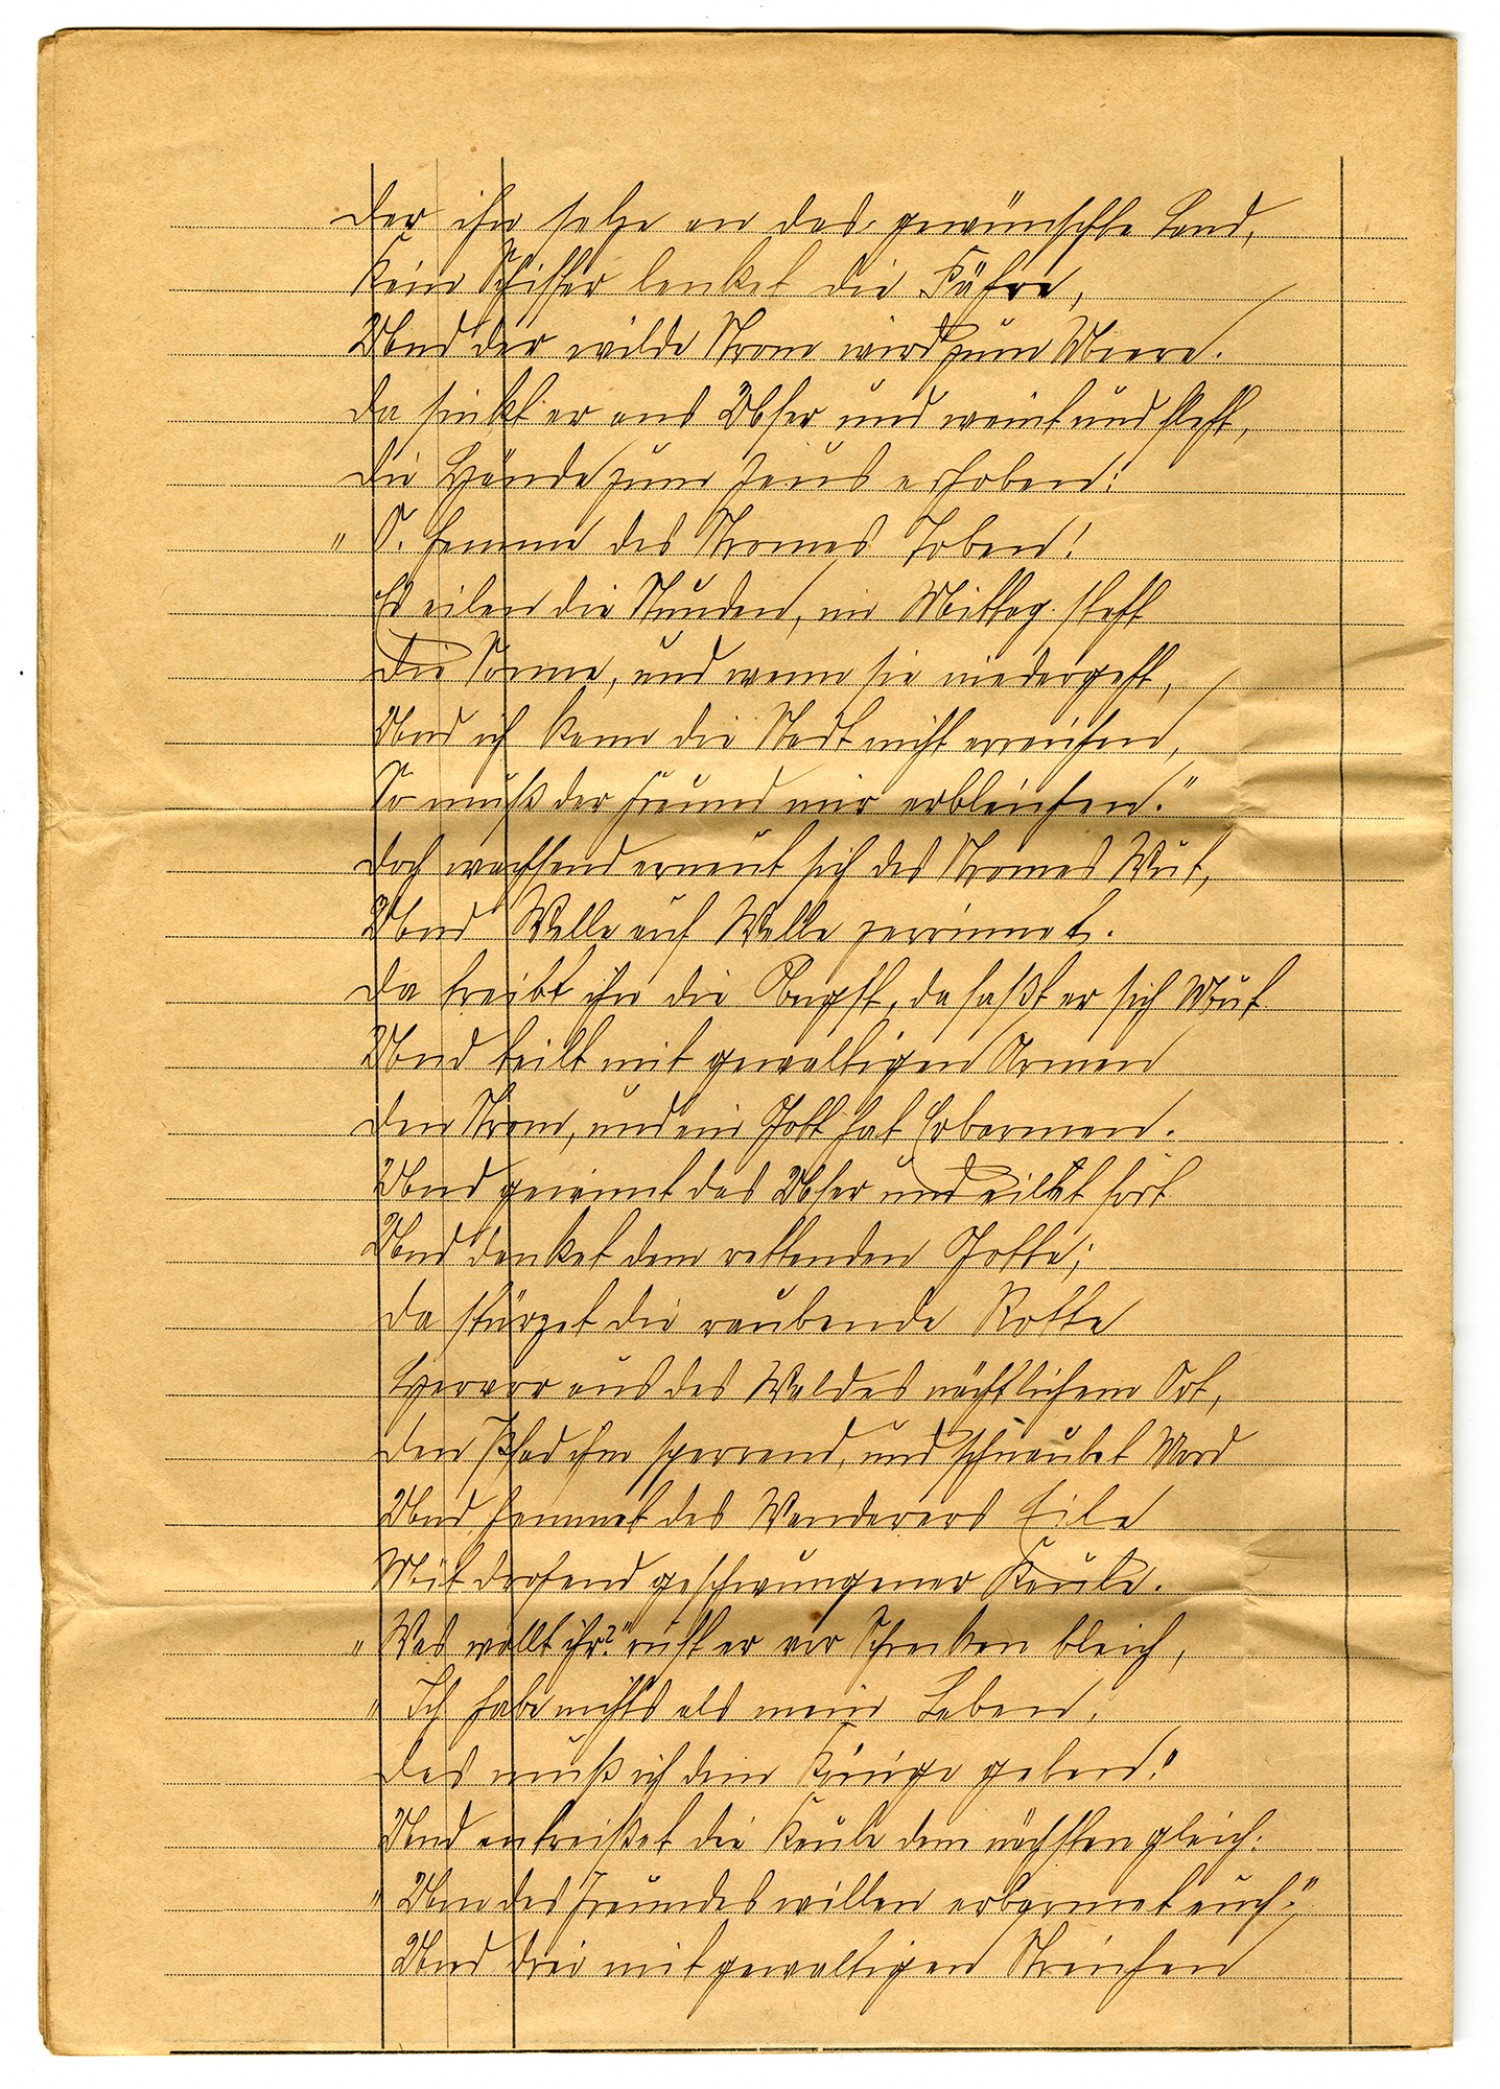 Der ihn setze an das gewünschte Land,
Kein Schiffer lenket die Fähre,
Und der wilde Strom wird zum Meere.
Da sinkt er ans Ufer und weint und fleht,
Die Hände zum Zeus erhoben:
„O. hemme des Stromes Toben!
Es eilen die Stunden, im Mittag steht
Die Sonne, und wenn sie niedergeht,
Und ich kann die Stadt nicht erreichen,
So muß der Freund mir erbleichen."
Doch wachsend erneut sich des Stromes Wut,
Und Welle auf Welle zerrinnet.
Da treibt ihn die Angst, da faßt er sich Mut
Und teilt mit gewaltigen Armen
Den Strom, und ein Gott hat Erbarmen.
Und gewinnt das Ufer und eilet fort
Und danket dem rettenden Gotte;
Da stürzet die raubende Rotte
Hervor aus des Waldes nächtlichem Ort,
Den Pfad ihm sperrend, und schnaubet Mord
Und hemmet des Wanderers Eile
Mit drohend geschwungener Keule.
„Was wollt ihr?" ruft er vor Schrecken bleich,
„Ich habe nichts als mein Leben,
Das muß ich dem Könige geben!"
Und entreißet die Keule dem nächsten gleich:
„Um des Freundes willen erbarmet euch!"
Und drei mit gewaltigen Streichen